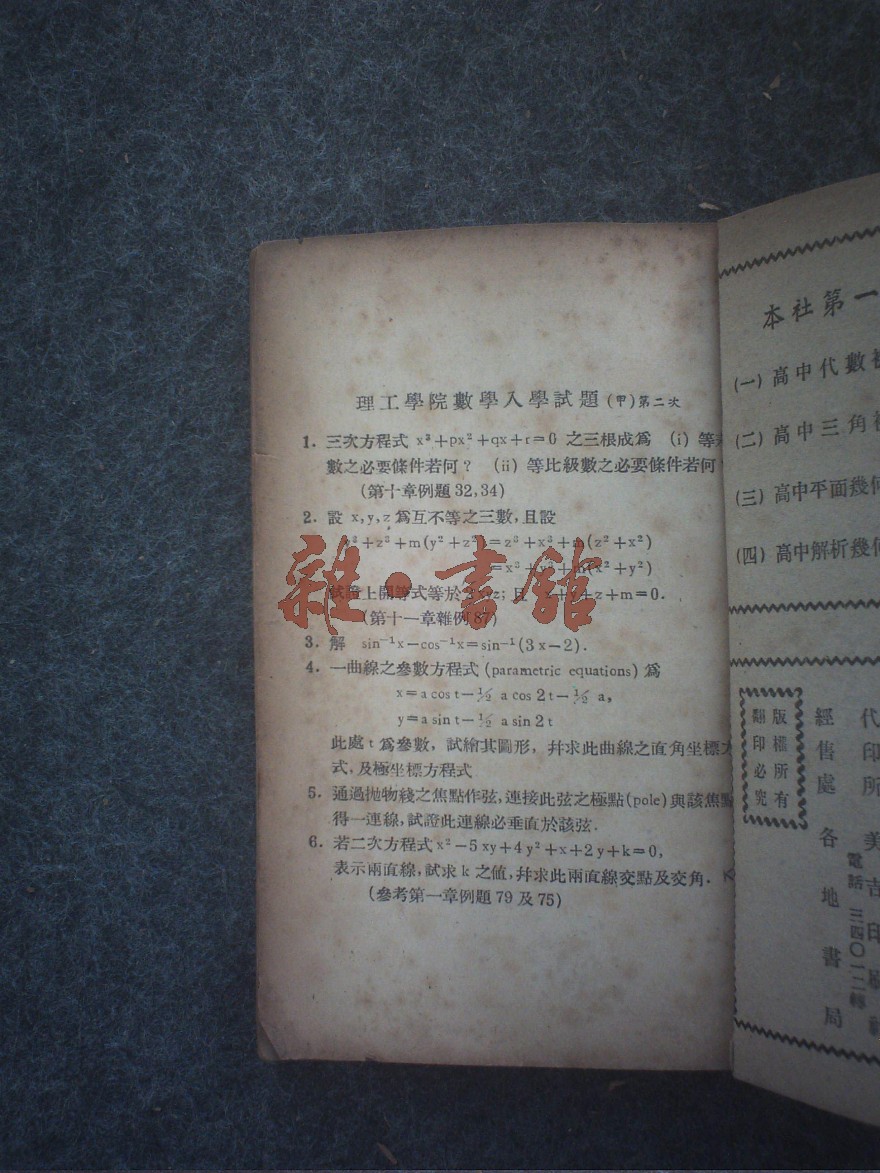 理工學院數學入學試題(甲)第二次
1. 三次方程式 x³+px²+qx+r=0 之三根成爲 (i) 等
數之必要條件若何? (ii) 等比級數之必要條件若何
(第十章例題 32,34)
2. 設 x,y,z 爲互不等之三數,且設
y³+z³+m(y²+z²)=z³+x³+m(z²+x²)
=x³+y³+m(x²+y²)
試證上開等式等於 2xyz; 且 x+y+z+m=0.
(第十一章雜例 87)
3. 解 sin⁻¹x−cos⁻¹x=sin⁻¹(3x−2).
4. 一曲線之參數方程式 (parametric equations) 爲
x=a cos t−½ a cos 2t−½ a,
y=a sin t−½ a sin 2t
此處 t 爲參數, 試繪其圖形, 幷求此曲線之直角坐標
式,及極坐標方程式
5. 通過拋物綫之焦點作弦,連接此弦之極點(pole)與該焦點
得一連線,試證此連線必垂直於該弦.
6. 若二次方程式 x²−5xy+4y²+x+2y+k=0,
表示兩直線,試求 k 之值,幷求此兩直線交點及交角.
(參考第一章例題 79 及 75)
雜·書館
本社第一
(一) 高中代數
(二) 高中三角
(三) 高中平面幾何
(四) 高中解析幾何
版權所有
翻印必究
代印所 美吉印刷社
電話 三四〇一二轉
經售處 各地書局